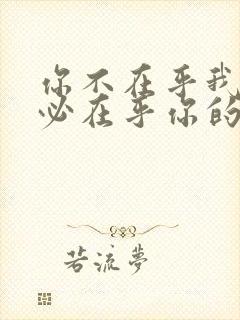 你不在乎我
必在乎你的
若流梦